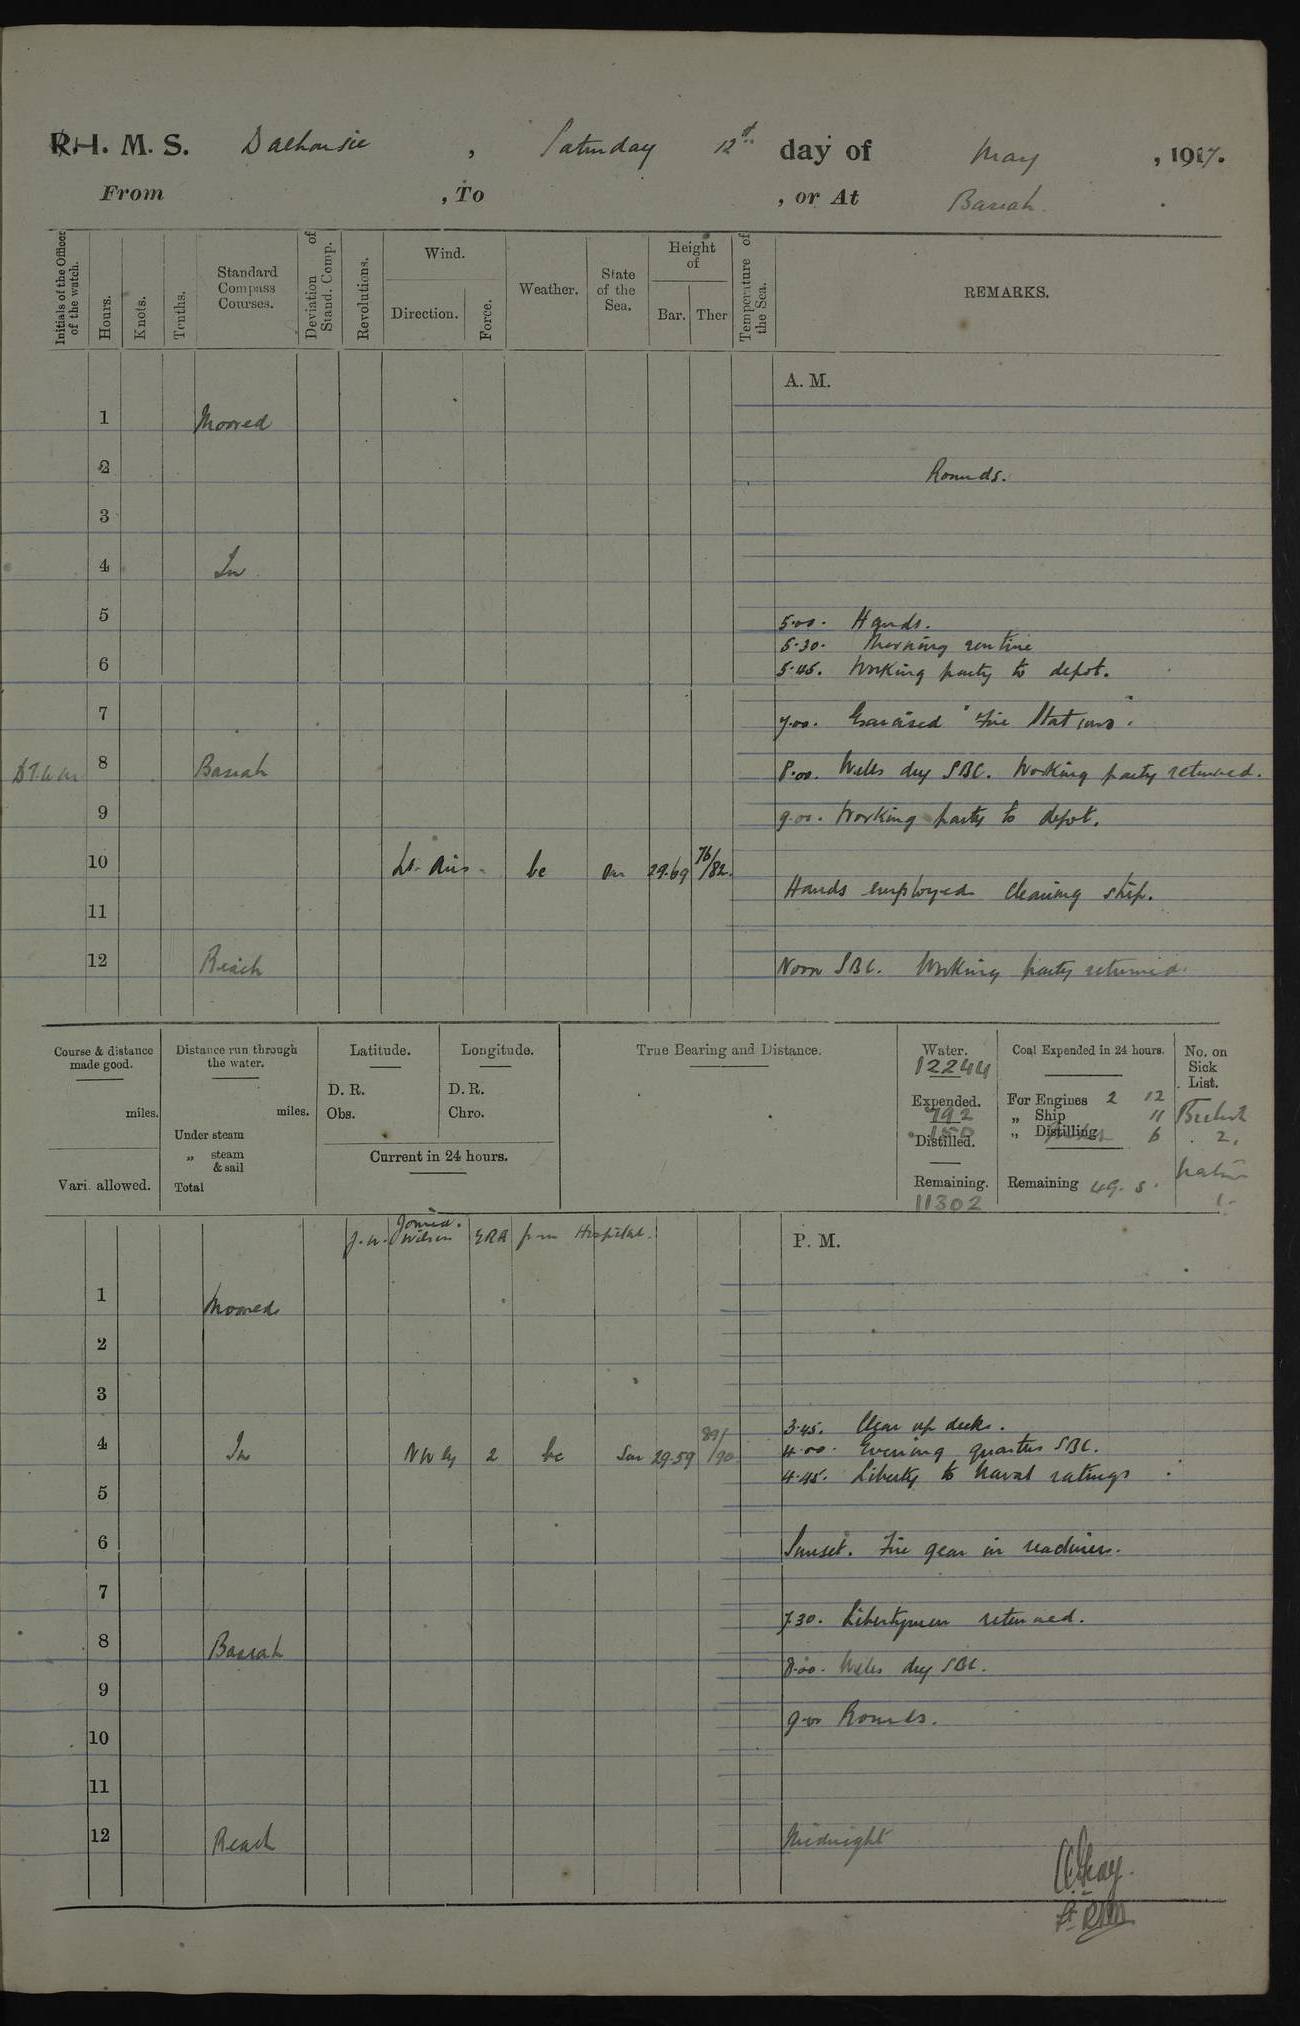 R.I.M.S. Dalhousie, Saturday 12th day of May, 1917.
From , To , or At Basrah.
Initials of the Officer of the watch.
Hours.
Knots.
Tenths.
Standard Compass Courses.
Deviation of Stand. Comp.
Revolutions.
Wind.
Direction.
Force.
Weather.
State of the Sea.
Height of
Bar.
Ther
Temperature of the Sea.
REMARKS.
A. M.
1 Moored
2 Rounds.
3
4 In
5 5.00. Hands.
5.30. Morning routine
6 5.45. Working party to depot.
7 7.00. Exercised "Fire Stations".
8 Basrah 8.00. Wells dry SBC. Working party returned.
9 9.00. Working party to depot.
10 Lt. Airs bc 29.69 76/82.
Hands employed cleaning ship.
11
12 Reach Noon SBC. Working party returned.
Course & distance made good.
miles.
Vari. allowed.
Distance run through the water.
miles.
Under steam
„ steam & sail
Total
Latitude.
D. R.
Obs.
Longitude.
D. R.
Chro.
Current in 24 hours.
True Bearing and Distance.
Water.
12244
Expended.
792
150
Distilled.
Remaining.
11302
Coal Expended in 24 hours.
For Engines 2 12
„ Ship 11
„ Distilling 6
Remaining 49. 5.
No. on Sick List.
2.
1.
Joined.
J. W. Wilson ERA from Hospital.
P. M.
1 Moored
2
3
3.45. Clear up decks.
4 In NWly 2 bc 29.59 89/90 4.00. Evening quarters SBC.
4.45. Liberty to Naval ratings
5
6 Sunset. Fire gear in readiness.
7
7.30. Libertymen returned.
8 Basrah 8.00. Wells dry SBC.
9
9.00 Rounds.
10
11
12 Reach Midnight